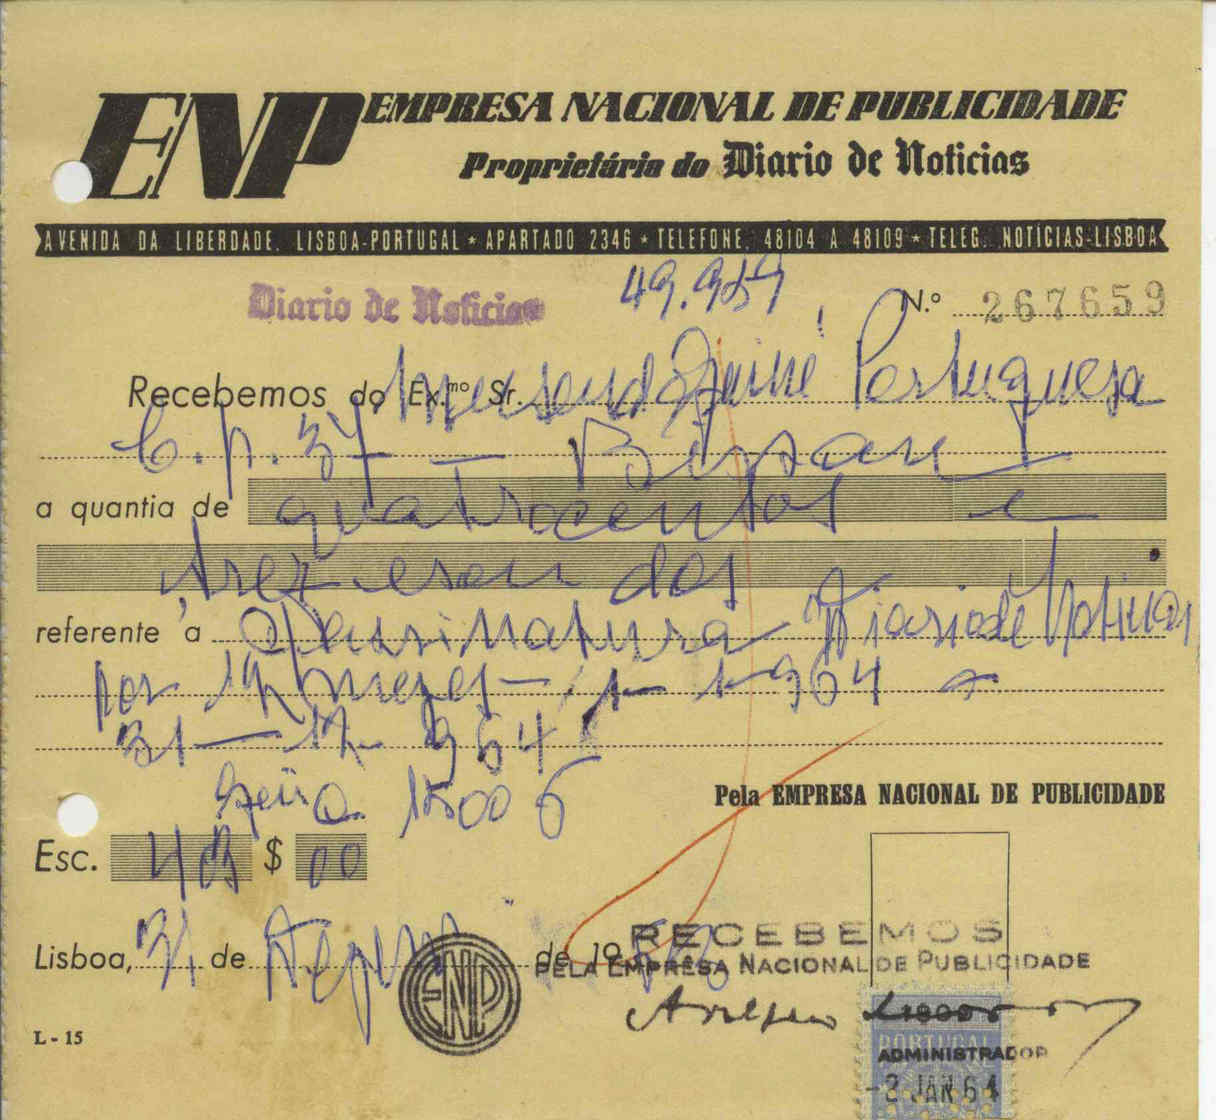 ENP EMPRESA NACIONAL DE PUBLICIDADE
Proprietária do Diario de Noticias
AVENIDA DA LIBERDADE, LISBOA-PORTUGAL ★ APARTADO 2346 ★ TELEFONE, 48104 A 48109 ★ TELEG. NOTÍCIAS-LISBOA
Diario de Noticias 49.959 N.º 267659
Recebemos do Ex.mo Sr. Portuguesa
C. p. 37 - Bissau
a quantia de quatrocentos e
trez escudos
referente a assinatura Diario de Noticias
por 12 mezes - 1-1-964 a
31-12-964
Pela EMPRESA NACIONAL DE PUBLICIDADE
Esc. 403 $ 00
Lisboa, 31 de de 19 63
RECEBEMOS
PELA EMPRESA NACIONAL DE PUBLICIDADE
ENP
L - 15
PORTUGAL
ADMINISTRADOR
-2 JAN 64